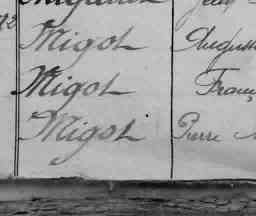 Migot Auguste
Migot Franç
Migot Pierre